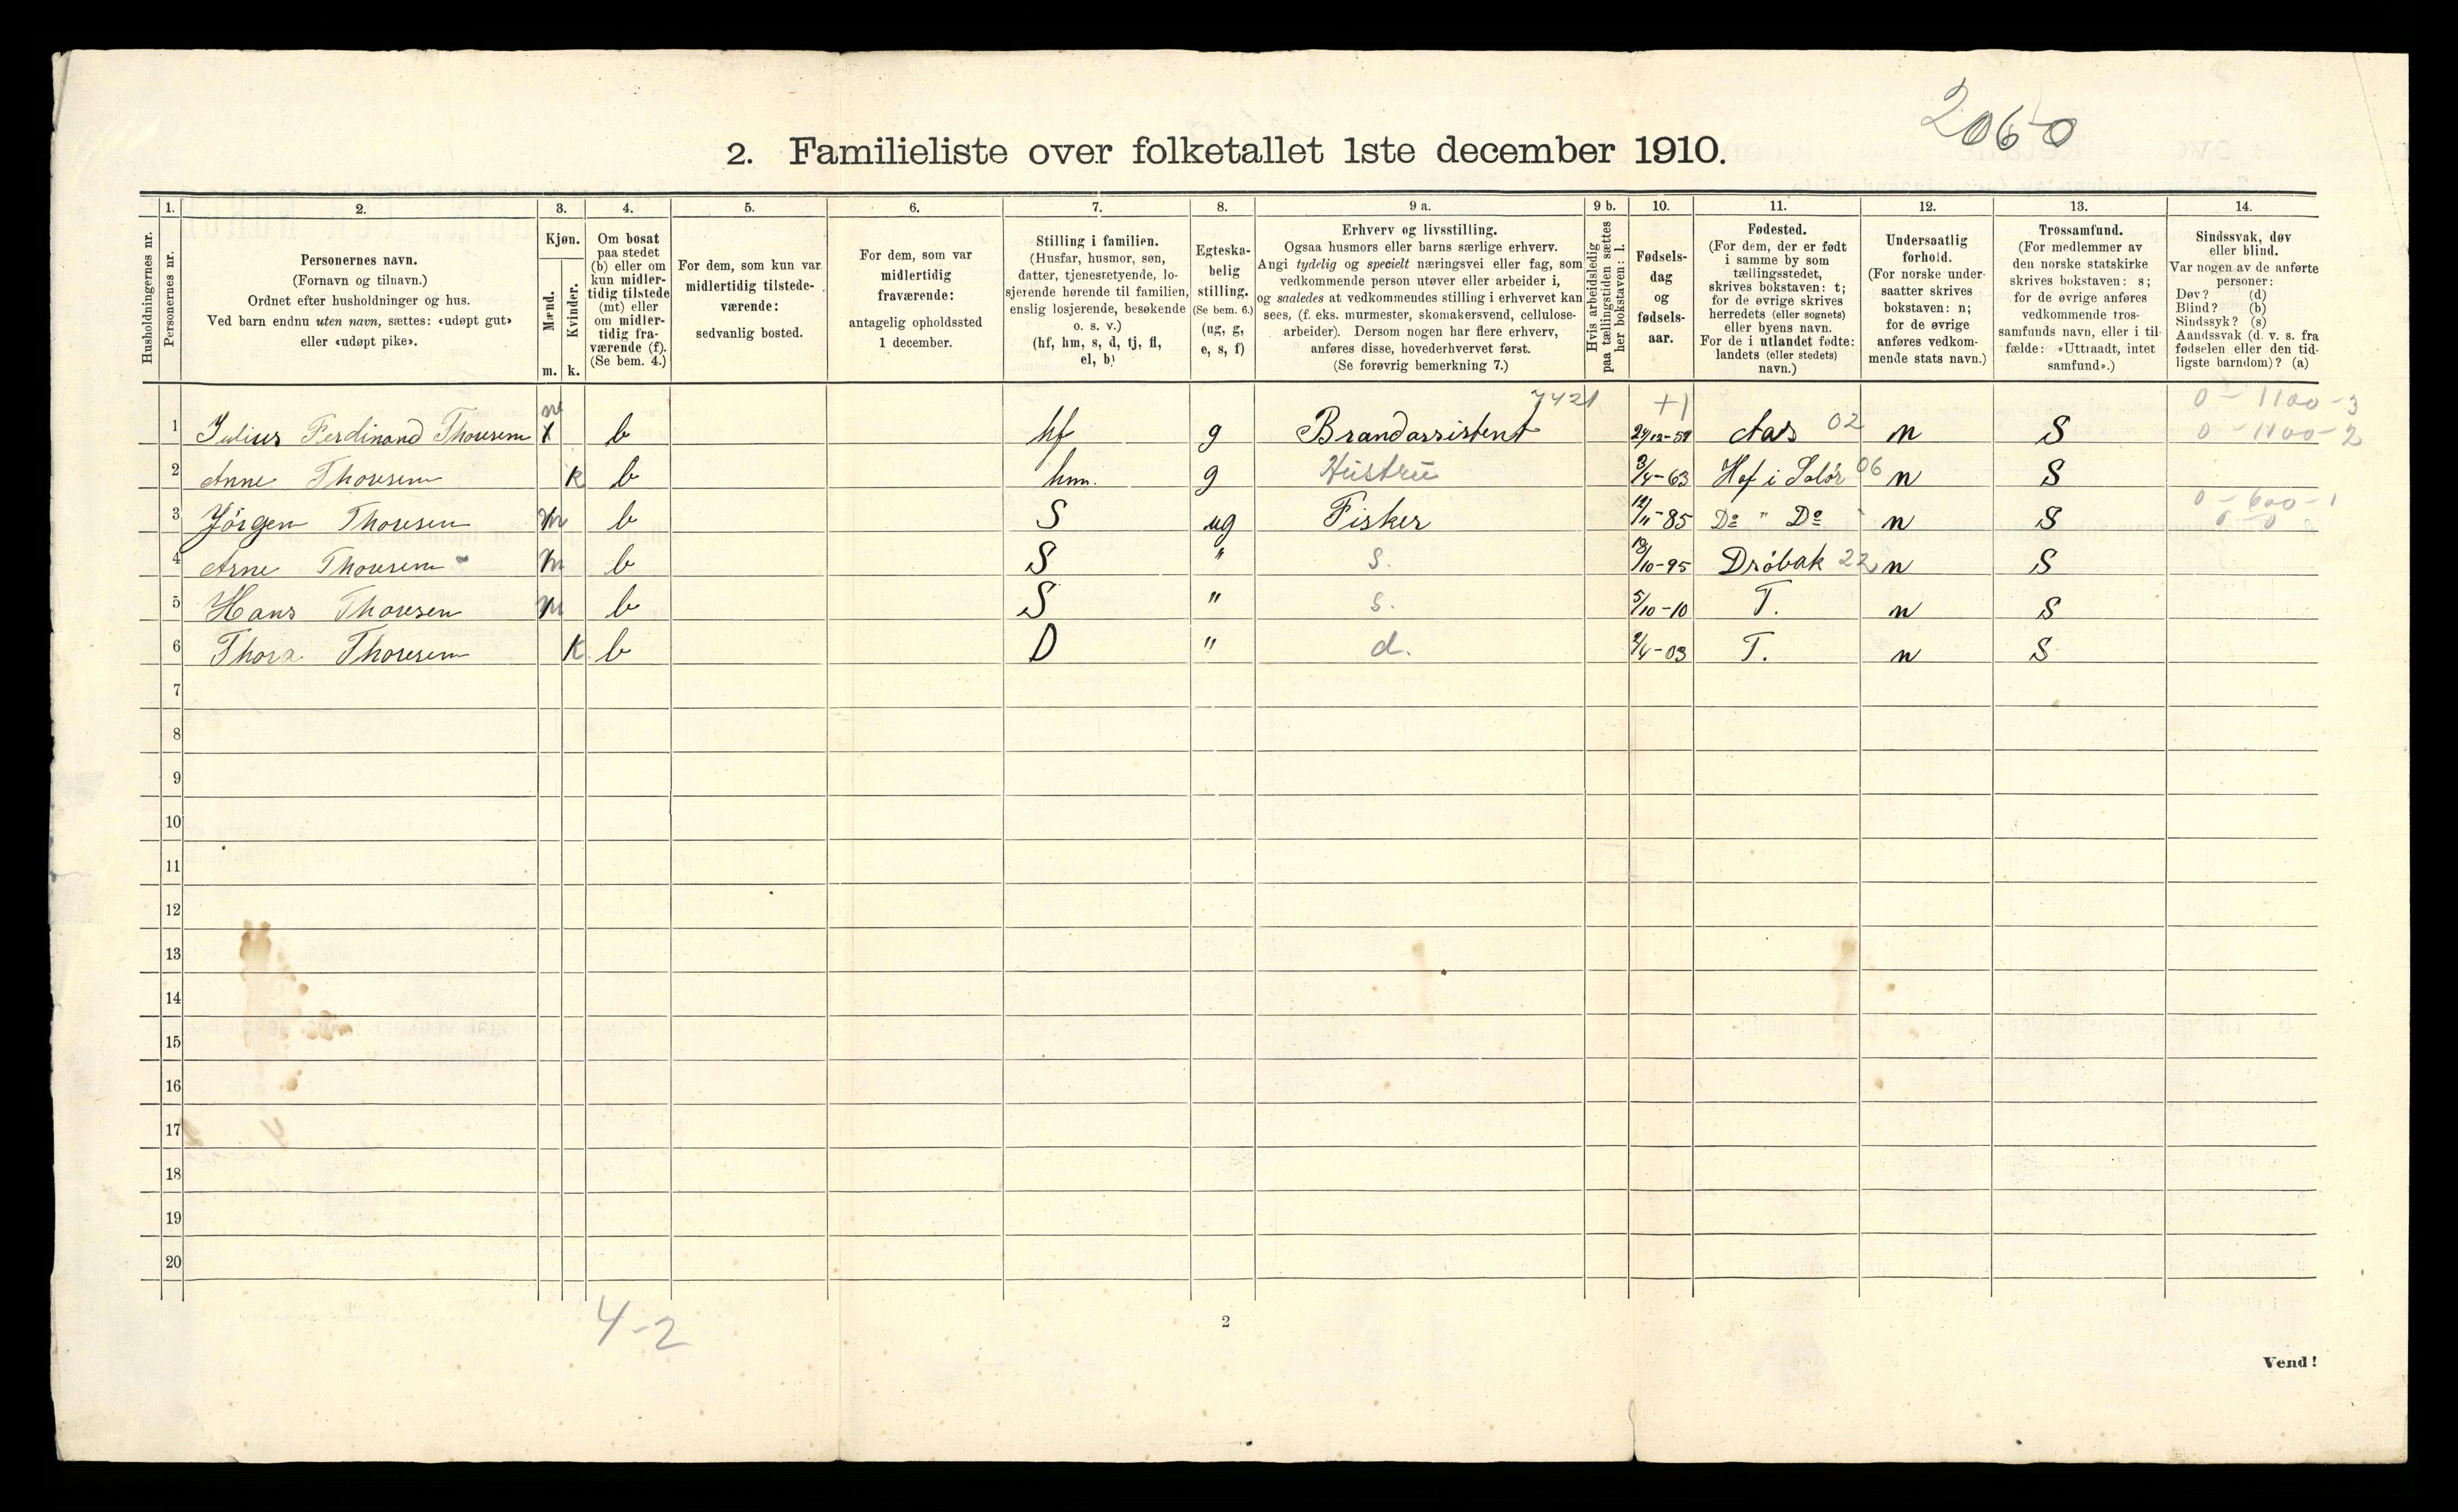 2060
2. Familieliste over folketallet 1ste december 1910.
Husholdningernes nr.
1.
Personernes nr.
2.
Personernes navn.
(Fornavn og tilnavn.)
Ordnet efter husholdninger og hus.
Ved barn endnu uten navn, sættes: «udøpt gut»
eller «udøpt pike».
3.
Kjøn.
Mænd.
Kvinder.
m. k.
4.
Om bosat
paa stedet
(b) eller om
kun midler-
tidig tilstede
(mt) eller
om midler-
tidig fra-
værende (f).
(Se bem. 4.)
5.
For dem, som kun var
midlertidig tilstede-
værende:
sedvanlig bosted.
6.
For dem, som var
midlertidig
fraværende:
antagelig opholdssted
1 december.
7.
Stilling i familien.
(Husfar, husmor, søn,
datter, tjenestetyende, lo-
sjerende hørende til familien,
enslig losjerende, besøkende
o. s. v.)
(hf, hm, s, d, tj, fl,
el, b)
8.
Egteska-
belig
stilling.
(Se bem. 6.)
(ug, g,
e, s, f)
9 a.
Erhverv og livsstilling.
Ogsaa husmors eller barns særlige erhverv.
Angi tydelig og specielt næringsvei eller fag, som
vedkommende person utøver eller arbeider i,
og saaledes at vedkommendes stilling i erhvervet kan
sees, (f. eks. murmester, skomakersvend, cellulose-
arbeider). Dersom nogen har flere erhverv,
anføres disse, hovederhvervet først.
(Se forøvrig bemerkning 7.)
9 b.
Hvis arbeidsledig
paa tællingstiden sættes
her bokstaven: l.
10.
Fødsels-
dag
og
fødsels-
aar.
11.
Fødested.
(For dem, der er født
i samme by som
tællingsstedet,
skrives bokstaven: t;
for de øvrige skrives
herredets (eller sognets)
eller byens navn.
For de i utlandet fødte:
landets (eller stedets)
navn.)
12.
Undersaatlig
forhold.
(For norske under-
saatter skrives
bokstaven: n;
for de øvrige
anføres vedkom-
mende stats navn.)
13.
Trossamfund.
(For medlemmer av
den norske statskirke
skrives bokstaven: s;
for de øvrige anføres
vedkommende tros-
samfunds navn, eller i til-
fælde: «Uttraadt, intet
samfund».)
14.
Sindssvak, døv
eller blind.
Var nogen av de anførte
personer:
Døv? (d)
Blind? (b)
Sindssyk? (s)
Aandssvak (d. v. s. fra
fødselen eller den tid-
ligste barndom)? (a)
m 7421 +1 0 - 1100 - 3
1 Julius Ferdinand Thoresen x b hf g Brandassistent 24/12-59 Aas 02 n S 0 - 1100 - 2
2 Anne Thoresen k b hm. g Hustru 3/4-63 Hof i Solør 06 n S
0 - 600 - 1
3 Jörgen Thoresen m b S ug Fisker 12/11-85 Do " Do n S 0 - 0
4 Arne Thoresen m b S " s. 18/10-95 Drøbak 22 n S
5 Hans Thoresen m b S " s. 5/10-10 T. n S
6 Thora Thoresen k b D " d. 2/4-03 T. n S
7
8
9
10
11
12
13
14
15
16
17
18
19
20
4-2
2
Vend!